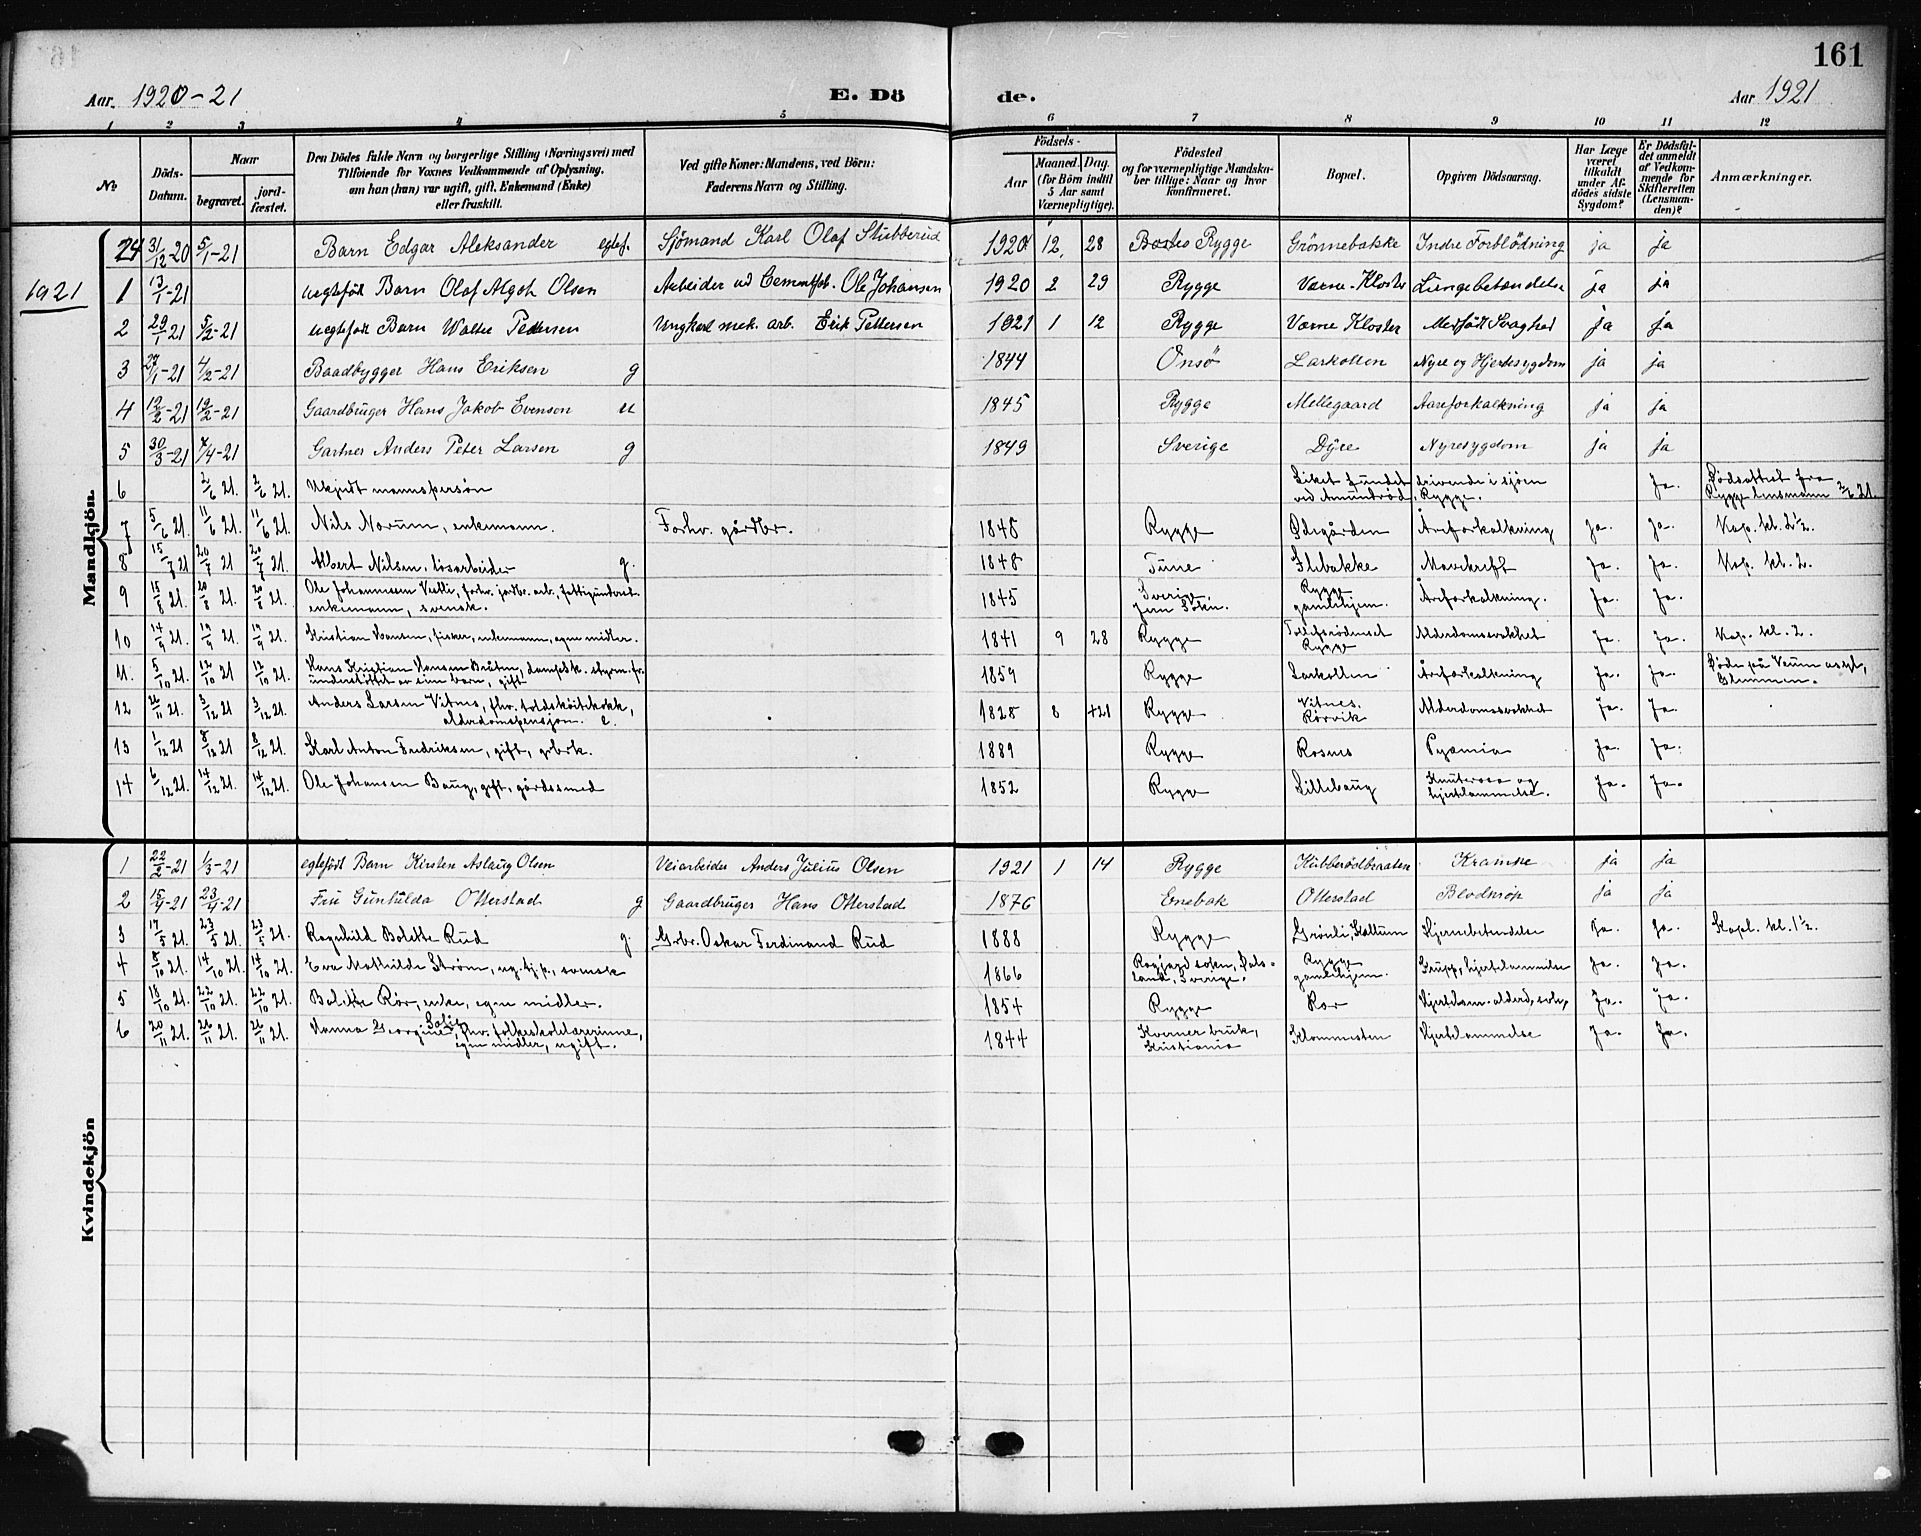 161
Aar. 1920-21 E. Dö de. Aar 1921
1 2 3 4 5 6 7 8 9 10 11 12
No Döds-Datum. Naar begravet. jord-fæstet. Den Dödes fulde Navn og borgerlige Stilling (Næringsvei) med Tilföiende for Voxnes Vedkommende af Oplysning, om han (hun) var ugift, gift, Enkemand (Enke) eller fraskilt. Ved gifte Koner: Mandens, ved Börn: Faderens Navn og Stilling. Födsels- Aar Maaned. Dag. (for Börn indtil 5 Aar samt Værnepligtige). Födested og for værnepligtige Mandskaber tillige: Naar og hvor konfirmeret. Bopæl. Opgiven Dödsaarsag. Har Læge været tilkaldt under Afdödes sidste Sygdom? Er Dödsfaldet anmeldt af Vedkommende for Skifteretten (Lensmanden)? Anmærkninger.
Mandkjön
24 31/12-20 5/1-21 Barn Edgar Aleksander egtef. Sjömand Karl Olaf Stubberud 1920 12. 28 Rygge Grönnebakke Indre Forblödning ja ja
1921
1 13/1-21 uegtefödt Barn Olaf Algoth Olsen Arbeider ved Cementfab. Ole Johansen 1920 2 29 Rygge Værne-Kloster Lungebetændelse ja ja
2 29/1 21 5/2-21 uegtefödt Barn Walter Pedersen Ungkarl mek. arb. Erik Pettersen 1921 1 12 Rygge Værne Kloster Medfödt Svaghed ja ja
3 27/1-21 4/2-21 Baadbygger Hans Eriksen g 1844 Onsö Larkollen Nyre og Hjertesygdom ja ja
4 12/2-21 19/2-21 Gaardbruger Hans Jakob Evensen u 1845 Rygge Mellegaard Aareforkalkning ja ja
5 30/3-21 7/4-21 Gartner Anders Peter Larsen g 1849 Sverige Dyre Nyresygdom ja ja
6 2/6 21. 2/6 21. Ukjendt mannsperson Liket fundet drivende i sjöen ved Amundröd, Rygge. Ja. Dødsattest fra Rygge lensmann 2/6 21.
7 5/6 21. 11/6 21. 11/6 21. Nils Norum, enkemann. Forhv. gårdbr. 1848 Rygge Ødegården Åreforkalkning Ja. Ja. Kap. kl. 2½.
8 15/7 21 20/7 21 20/7 21. Albert Nilsen, løsarbeider g. 1848 Tune Flebakke Mavekreft Ja. Ja. Kap. kl. 2.
9 15/8 21. 20/8 21. 20/8 21. Ole Johannessen Vestli, forhv. jordbr. arb., fattigunderst. enkemann, svensk. 1845 Sverige, Rygge gamlehjem. Åreforkalkning. Ja. Ja.
10 14/9 21. 19/9 21. 19/9 21. Kristian Hansen, fisker, enkemann, egne midler. 1841 9 28 Rygge Rygge Alderdomssvakhet Ja. Ja. Kap. kl. 2.
11. 5/10 21. 12/10 21 12/10 21. Hans Kristian Hansen Bråten, dampsk. styrm. fr. understøttet av sine barn, gift 1859 Rygge Larkollen Åreforkalkning Ja. Ja. Døde på Veum asyl, Glemmen.
12 26/11 21. 3/12 21 3/12 21. Anders Larsen Vitnes, fhv. toldskøitekokk, alderdomspensjon. e. 1828 8 21 Rygge Vitnes, Rørvik Alderdomssvakhet Ja. Ja.
13 1/12 21 8/12 21 8/12 21. Karl Anton Fredriksen, gift, grbrk. 1889 Rygge Rosnes Pyæmia Ja. Ja.
14 6/12 21. 14/12 21. 14/12 21. Ole Johansen Baug, gift, gårdssmed 1852 Rygge Lillebaug Knuterosen og hjertelammelse. Ja. Ja.
Kvindekjön
1 22/2-21 1/3-21 egtefödt Barn Kirsten Aslaug Olsen Veiarbeider Anders Julius Olsen 1921 1 14 Rygge Kubberødbraaten Krampe ja ja
2 15/4-21 23/4-21 Fru Gunhilda Otterstad g Gaardbruger Hans Otterstad 1876 Enebak Otterstad Blodtröp ja ja
3 17/5 21. 23/5 21. 23/5 21. Ragnhild Bolette Rud g. Grbr. Oskar Ferdinand Rud 1888 Rygge Grønli, Haltum Hjernebetendelse Ja. Ja. Kapl. kl. 1½.
4 8/10 21. 14/10 21. 14/10 21. Eva Mathilde Strøm, ug. tj.p., svensk 1866 sokn, Dalsland, Sverige. Rygge gamlehjem. Krupp, hjertelammelse Ja. Ja.
5 18/10 21. 22/10 21. 22/10 21. Bolette Rør, enke, egne midler. 1854 Rygge Rør Hjertelam. alderd. svk. Ja. Ja.
6 20/11 21. 26/11 21. 26/11 21. Hanna Georgine, fhv. folkeskolelærerinne, egne midler, ugift. 1844 Kværner bruk, Kristiania Klommesten Hjertelammelse Ja. Ja.